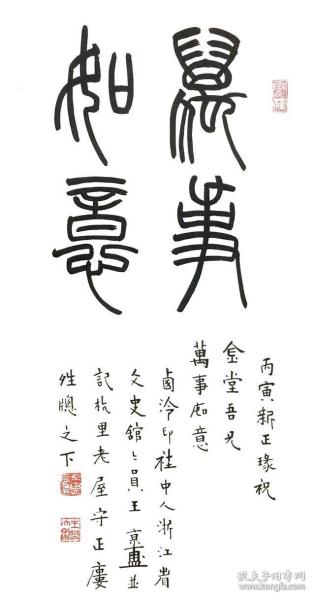 萬事
如意
丙寅新正瑑祝
金堂吾兄
萬事如意
卥泠印社中人浙江省
文史館〻員王京盙並
記杭里老屋守正廔
牕之下
孔夫子旧书网